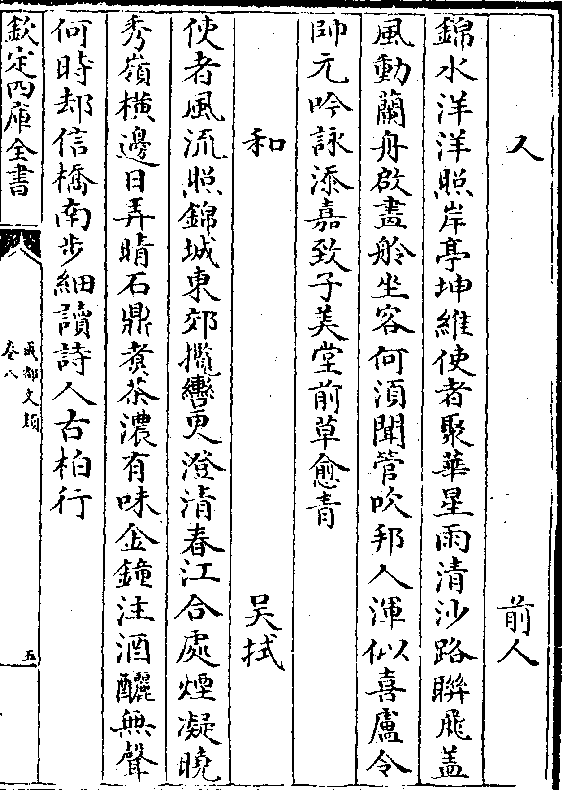 又　前人
錦水洋洋照岸亭坤維使者聚華星雨清沙路聯飛盖
風動蘭舟啟畫舲坐客何湏聞管吹邦人渾似喜盧令
帥元吟詠添嘉致子美堂前草愈青
和　吴拭
使者風流照錦城東郊攬轡更澄清春江合處煙凝曉
秀嶺橫邊日弄晴石鼎煮茶濃有味金鐘注酒釃無聲
何時却信橋南步細讀詩人古柏行
欽定四庫全書
成都文類
卷八
五